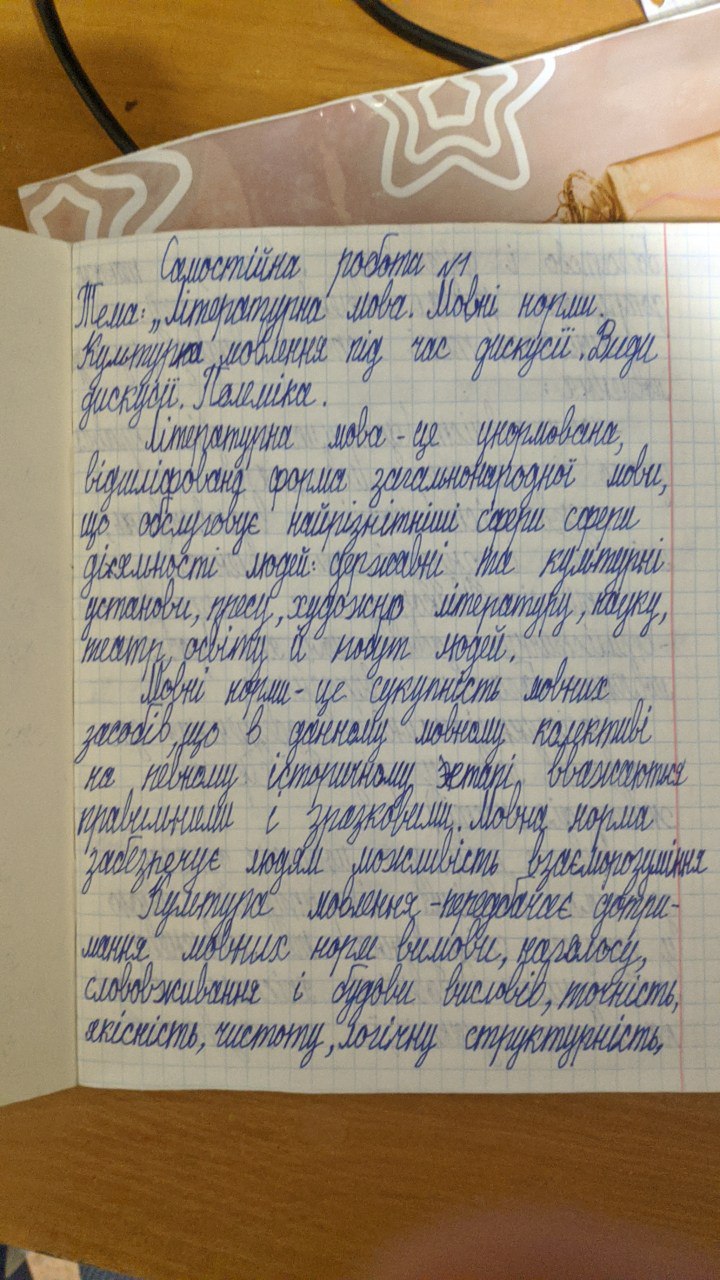 Самостійна робота №1
Тема: „Літературна мова. Мовні норми.
Культурка мовлення під час дискусії. Види
дискусії. Полеміка.
Літературна мова - це унормована,
відшліфована форма загальнонародної мови,
що обслуговує найрізнітніші сфери сфери
діяльності людей: державні та культурні
установи, пресу, художню літературу, науку,
театр, освіту й побут людей.
Мовні норми - це сукупність мовних
засобів, що в данному мовному колективі
на певному історичному етапі вважаються
правильними і зразковими. Мовна норма
забезпечує людям можливість взаєморозуміння
Культура мовлення - передбачає дотри-
мання мовних норм вимови, наголосу,
слововживання і будови висловів, точність,
якісність, чистоту, логічну структурність,